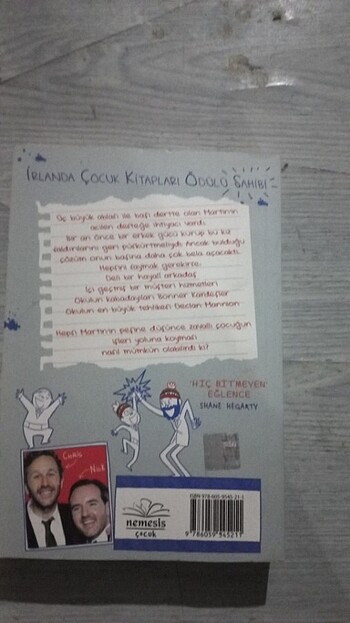 İRLANDA ÇOCUK KİTAPLARI ÖDÜLÜ SAHİBİ
Üç büyük ablası ile başı dertte olan Martin'in
acilen desteğe ihtiyacı vardı.
Bir an önce bir erkek gücü kurup bu kız
saldırılarını geri püskürtmeliydi. Ancak bulduğu
çözüm onun başına daha çok bela açacaktı.
Hepsini saymak gerekirse;
Deli bir hayali arkadaş
İçi geçmiş bir müşteri hizmetleri
Okulun kabadayıları Bonner Kardeşler
Okulun en büyük tehlikesi Declan Mannion
Hepsi Martin'in peşine düşünce zavallı çocuğun
işleri yoluna koyması
nasıl mümkün olabilirdi ki?
'HİÇ BİTMEYEN
EĞLENCE
SHANE HEGARTY
Chris
Nick
nemesis
çocuk
ISBN 978-605-9545-21-1
9786059545211